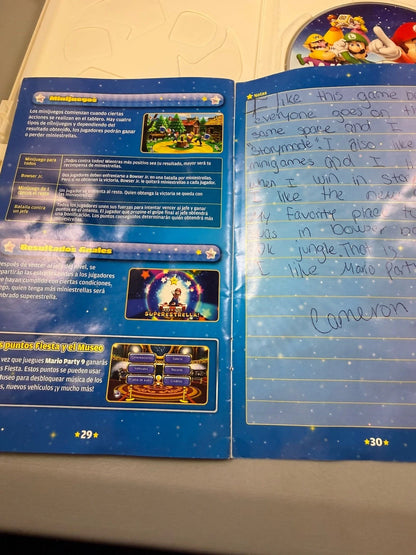 Minijuegos
Los minijuegos comienzan cuando ciertas
acciones se realizan en el tablero. Hay cuatro
tipos de minijuegos y dependiendo del
resultado obtenido, los jugadores podrán ganar
o perder miniestrellas.
Minijuego para todos
¡Todos contra todos! Mientras más positivo sea tu resultado, mayor será tu
recompensa de miniestrellas.
Bowser Jr.
Dos jugadores deben enfrentarse a Bowser Jr. en una batalla por miniestrellas.
Pero, si no obtienen la victoria, Bowser Jr. le quitará miniestrellas a cada jugador.
Un jugador se enfrenta al resto. Quien obtenga la victoria se queda con
Batalla contra un jefe
Todos los jugadores unen sus fuerzas para intentar vencer al jefe y ganar
puntos en el combate. El jugador que propine el golpe final al jefe obtendrá
una bonificación. Los puntos conseguidos determinarán quién obtendrá más
miniestrellas.
Resultados finales
después de vencer al jefe del nivel, se
jugadores
hayan cumplido con ciertas condiciones.
quien tenga más miniestrellas será
superestrella.
SUPERESTRELLA!
puntos Fiesta y el Museo
vez que juegues Mario Party 9 ganarás
Fiesta. Estos puntos se pueden usar
Museo para desbloquear música de los
nuevos vehículos ¡y mucho más!
29
Notas
I like this game
everyone goes on th
same space and I
"Storymode". I also like
minigames and I
when I win in star
like the new
My favorite place
is in bowser
DK jungle. That is
I like Mario Party
Cameron
30